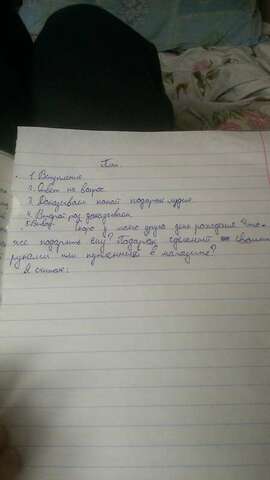 План.
1. Вступление
2. Ответ на вопрос
3. Доказываем какой подарок лучше
4. Второй раз доказываем
5. Вывод. Скоро у моего друга день рождения. Что
же подарить ему? Подарок сделаный своими
руками или купленный в магазине?
Я считаю: